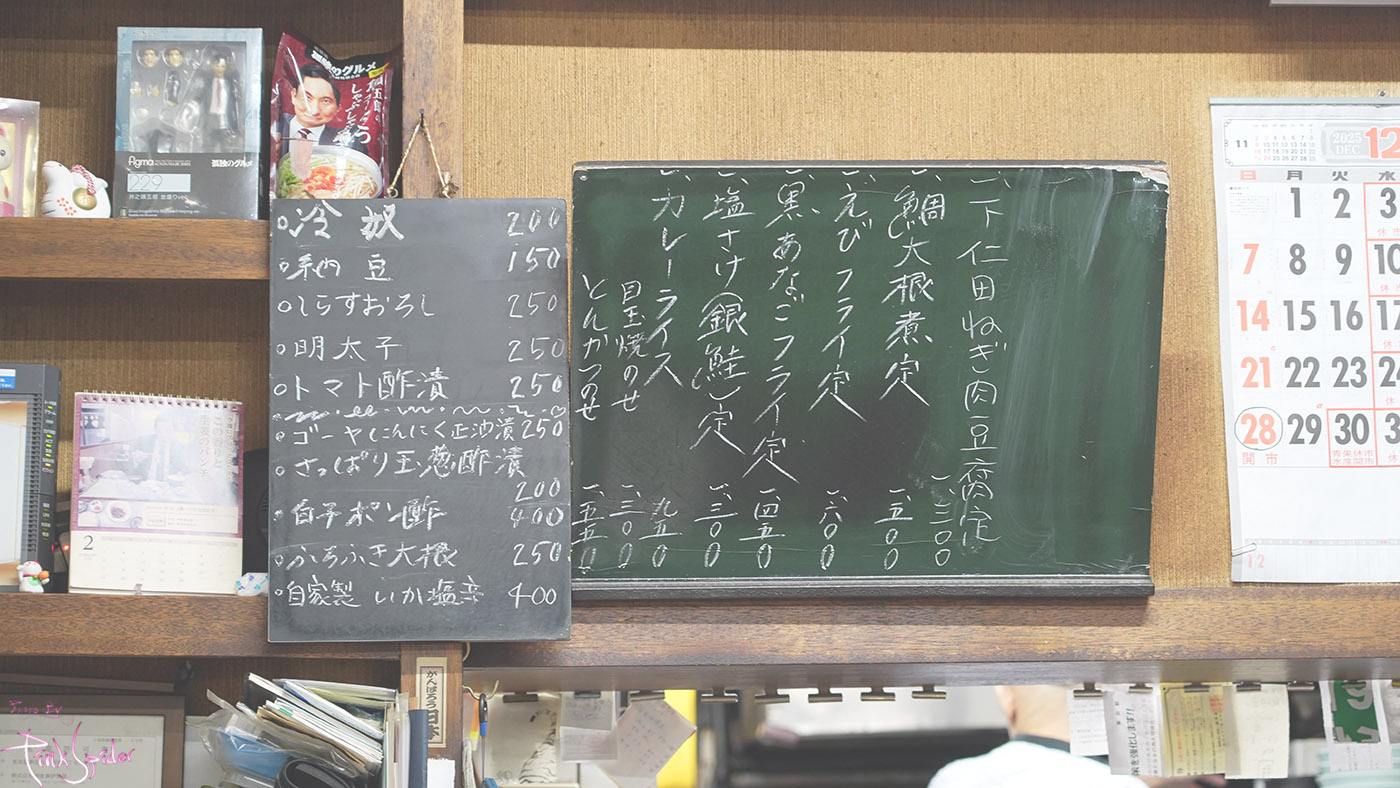 figma
孤独のグルメ
229
井之頭五郎
孤独のグルメ
しゃぶしゃぶ
冷奴 200
納豆 150
しらすおろし 250
明太子 250
トマト酢漬 250
ゴーヤにんにく正油漬 250
さっぱり玉葱酢漬
200
白子ポン酢 400
ふろふき大根 250
自家製 いか塩辛 400
一、下仁田ねぎ肉豆腐定 一、三〇〇
一、鯛大根煮定 一、五〇
一、えびフライ定 一、六〇〇
一、黒あなごフライ定 一、四五〇
一、塩さけ(銀鮭)定 一、三〇〇
一、カレーライス 九五〇
目玉焼のせ 一、三〇〇
とんかつのせ 一、五五〇
11
2025
DEC
12
日 月 火 水
1 2 3
休市
7 8 9 10
休
14 15 16 17
21 22 23 24
休
28 29 30
開市
青果休市
水産開市
休
12
2
この香りと
がんばろう日本
を強化します!!
Photo by
PinkSpider